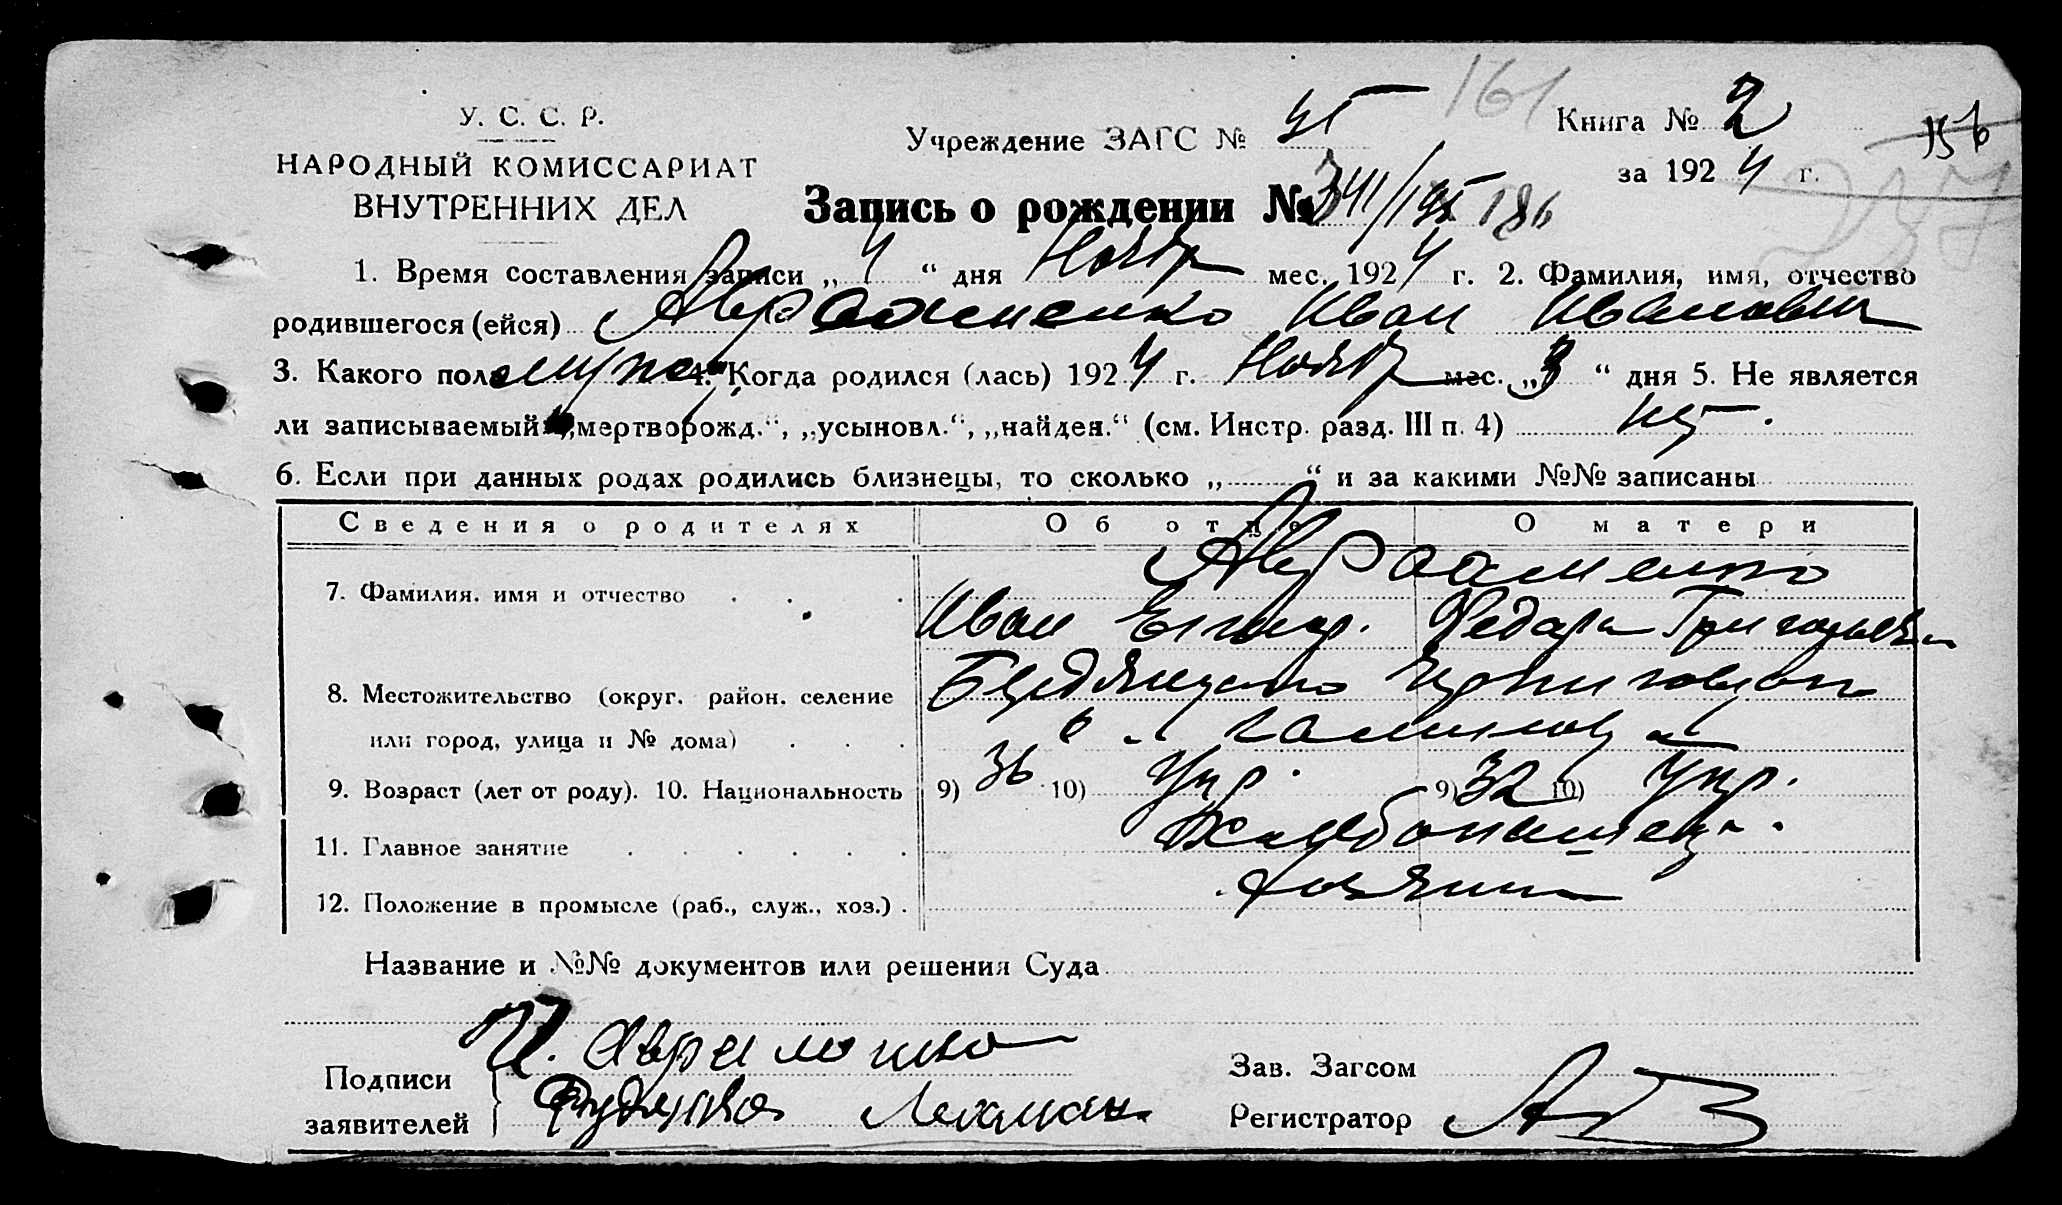 161
У. С. С. Р.
Учреждение ЗАГС №
Книга № 2
156
НАРОДНЫЙ КОМИССАРИАТ
за 1924 г.
237
ВНУТРЕННИХ ДЕЛ
Запись о рождении № 341/195 186
1. Время составления записи „4“ дня Нояб мес. 1924 г. 2. Фамилия, имя, отчество
родившегося (ейся) Авраменко Иван Иванович
3. Какого пола муж. 4. Когда родился (лась) 1924 г. Нояб мес. „3“ дня 5. Не является
ли записываемый „мертворожд.“, „усыновл.“, „найден.“ (см. Инстр. разд. III п. 4) нет.
6. Если при данных родах родились близнецы, то сколько „ “ и за какими №№ записаны
Сведения о родителях Об отце О матери
Авраменко
7. Фамилия, имя и отчество
Иван Федора Григорьевн
8. Местожительство (округ. район. селение Бердянского Черниговского
или город, улица и № дома)
9. Возраст (лет от роду). 10. Национальность 9) 36 10) Укр. 9) 32 10) Укр.
11. Главное занятие Хлебопашец.
12. Положение в промысле (раб., служ., хоз.) хозяин
Название и №№ документов или решения Суда
И. Авраменко
Подписи
Зав. Загсом
заявителей
Регистратор